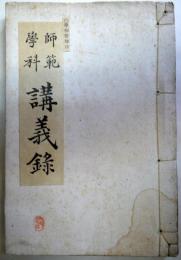 師範
學科
講義錄